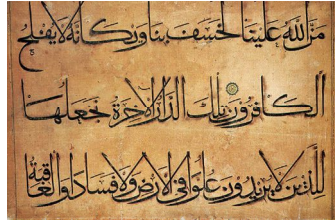 مَنَّ اللهُ عَلَيْنَا لَخَسَفَ بِنَا وَيْكَانَّهُ لَا يُفْلِحُ
الْكَافِرُونَ تِلْكَ الدَّارُ الْآخِرَةُ نَجْعَلُهَا
لِلَّذِينَ لَا يُرِيدُونَ عُلُوًّا فِي الْأَرْضِ وَلَا فَسَادًا وَالْعَاقِبَةُ